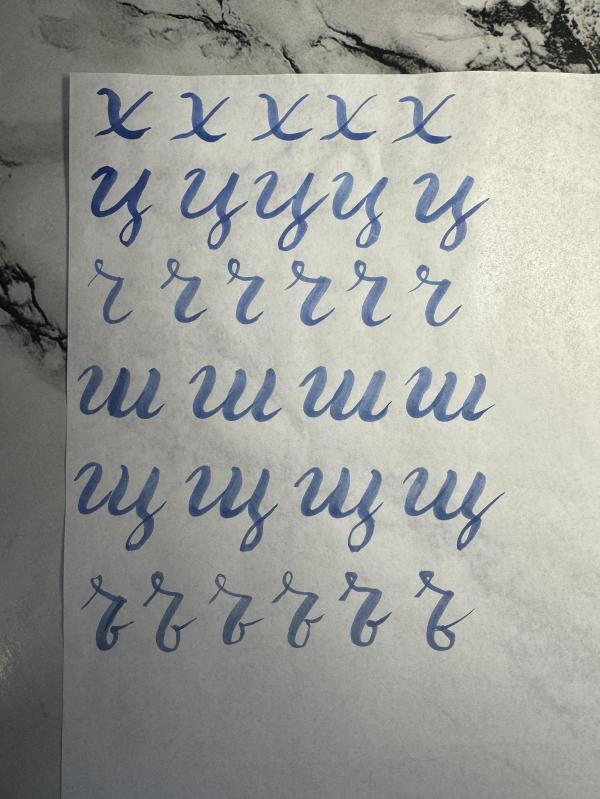 х х х х х
ц ц ц ц ц
ч ч ч ч ч ч
ш ш ш ш
щ щ щ щ
ъ ъ ъ ъ ъ ъ